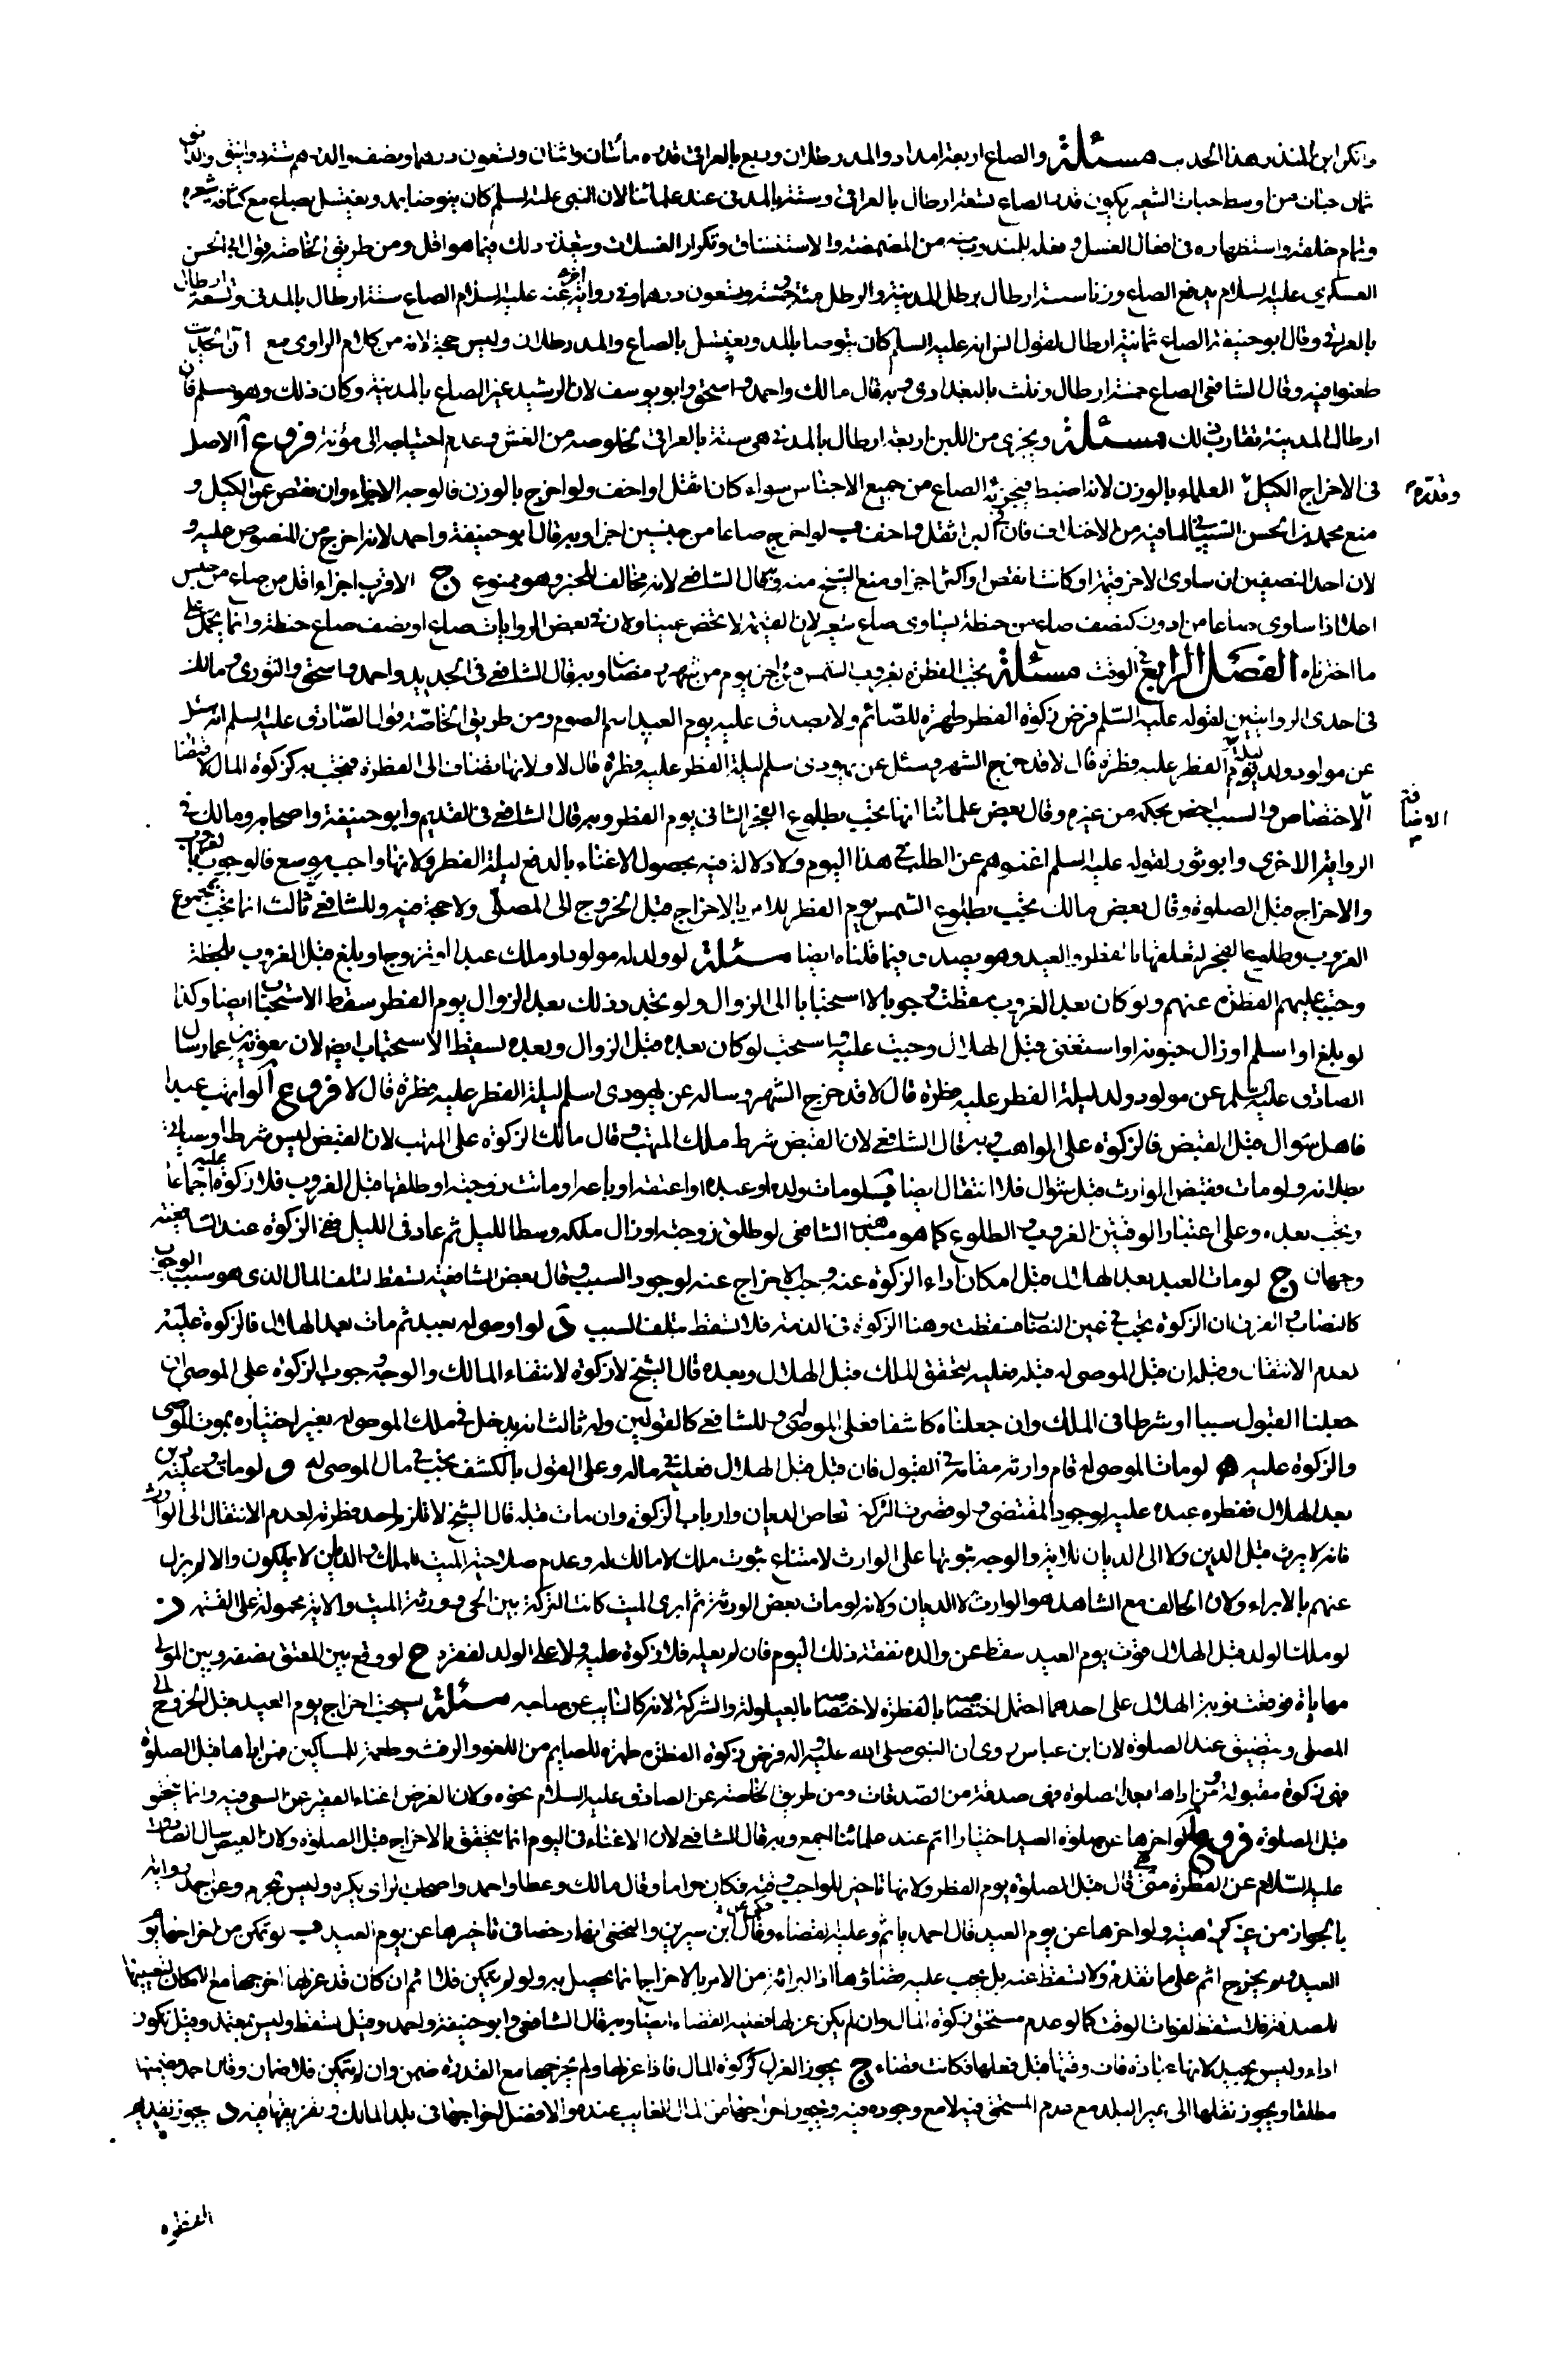 وانكر ابن المنذر هذا الحديث مسئلة والصاع اربعة امداد والمد رطلان وربع بالعراقى قدره مائتان واثنان وتسعون درهما ونصف والدرهم ستة دوانيق والدانق
ثمان حبات من اوسط حبات الشعير يكون قدر الصاع تسعة ارطال بالعراقى وستة بالمدنى عند علمائنا لان النبى عليه السلم كان يتوضا بمد ويغتسل بصاع مع كثافة شعره
وتمام خلقه واستظهاره فى افعال الغسل وفعله للمندوب فيه من المضمضة والاستنشاق وتكرار الغسلات وبتعذر ذلك فيما هو اقل ومن طريق الخاصة قول ابى الحسن
العسكرى عليه السلام يدفع الصاع وزنا ستة ارطال برطل المدينة والرطل مئة وخمسة وتسعون درهما وفى رواية اخرى عنه عليه السلام الصاع ستة ارطال بالمدنى وتسعة ارطال
بالعراقى وقال ابو حنيفة الصاع ثمانية ارطال لقول انس انه عليه السلم كان يتوضا بالمد ويغتسل بالصاع والمد رطلان وليس حجة لانه من كلام الراوى مع ان المحدثين
طعنوا فيه وقال الشافعى الصاع خمسة ارطال وثلث بالبغدادى وبه قال مالك واحمد واسحق وابو يوسف لان الرشيد عير الصاع بالمدينة وكان ذلك وهو مسلم فان
ارطال المدينة تقارب ذلك مسئلة ويجزى من اللبن اربعة ارطال بالمدنى هى ستة بالعراقى لخلوصه من الغش وعدم احتياجه الى مؤنة فروع آ الاصل
فى الاخراج الكيل وقدره العلماء بالوزن لانه اضبط فيجزئه الصاع من جميع الاجناس سواء كان اثقل او اخف ولو اخرج بالوزن فالوجه الاجزاء وان نقص عن الكيل و
منع محمد بن الحسن الشيبانى لما فيه من الاختلاف فان فى البر اثقل واخف ب لو اخرج صاعا من جنسين اجزا وبه قال ابو حنيفة واحمد لانه اخرج من المنصوص عليه و
لان احد النصفين ان ساوى الاخر قيمة او كانتا نقص او اكثر اجزا ومنع الشيخ منه وبه قال الشافعى لانه مخالف للخبر وهو ممنوع ج الاقرب اجزاء اقل من صاع من جنس
اعلا اذا ساوى صاعا من ادون كنصف صاع من حنطة يساوى صاع شعير لان القيمة لا تخص عينا ولان فى بعض الروايات صاع او نصف صاع حنطة وانما يحمل على
ما اخترناه الفصل الرابع فى الوقت مسئلة تجب الفطرة بغروب الشمس من اخر يوم من شهر رمضان وبه قال الشافعى فى الجديد واحمد واسحق والثورى ومالك
فى احدى الروايتين لقوله عليه السلم فرض زكوة الفطر طهرة للصائم ولا يصدق عليه يوم العيد اسم الصوم ومن طريق الخاصة قول الصادق عليه السلم انه سئل
عن مولود ولد ليلة الفطر عليه فطرة قال لا قد خرج الشهر وسئل عن يهودى اسلم ليلة الفطر عليه فطرة قال لا ولانها تضاف الى الفطرة فيجب به كزكوة المال لاقتضا
الاضافة الاختصاص والسبب اخص بحكمه من غيره وقال بعض علمائنا انها تجب بطلوع الفجر الثانى يوم الفطر وبه قال الشافعى فى القديم وابو حنيفة واصحابه ومالك فى
الرواية الاخرى وابو ثور لقوله عليه السلم اغنوهم عن الطلب فى هذا اليوم ولا دلالة فيه لحصول الاغناء بالدفع ليلة الفطر ولانها واجب موسع فالوجوب بالغروب
والاخراج قبل الصلوة وقال بعض مالك تجب بطلوع الشمس يوم الفطر للامر بالاخراج قبل الخروج الى المصلى ولا حجة فيه وللشافعى ثالث انما تجب بمجموع
الغروب وطلوع الفجر لتعلقها بالفطر والعيد وهو يصدق فيما قلناه ايضا مسئلة لو ولد له مولود او ملك عبدا او تزوج او بلغ قبل الغروب بلحظة
وجب عليهم الفطرة عنهم ولو كان بعد الغروب سقطت وجوبا لا استحبابا الى الزوال ولو تجدد ذلك بعد الزوال يوم الفطر سقط الاستحباب ايضا وكذا
لو بلغ او اسلم او زال جنونه او استغنى قبل الهلال وجبت عليه واستحب لو كان بعده قبل الزوال وبعده يسقط الاستحباب ايضا لان معوية بن عمار سال
الصادق عليه السلم عن مولود ولد ليلة الفطر عليه فطرة قال لا قد خرج الشهر وساله عن يهودى اسلم ليلة الفطر عليه فطرة قال لا فروع آ لو اتهب عبدا
فاهل شوال قبل القبض فالزكوة على الواهب وبه قال الشافعى لان القبض شرط ملك المتهب وقال مالك الزكوة على المتهب لان القبض ليس شرطا وسياتى
بطلانه ولو مات وقبض الوارث قبل شوال فلا انتقال ايضا ب لو مات ولده او عبده او اعتقه او باعه او ماتت زوجته او طلقها قبل الغروب فلا زكوة عليه اجماعا
وتجب بعده وعلى اعتبار الوقتين الغروب والطلوع كما هو مذهب الشافعى لو طلق زوجته او زال ملكه وسط الليل ثم عاد فى الليل ففى الزكوة عند الشافعية
وجهان ج لو مات العبد بعد الهلال قبل امكان اداء الزكوة عنه وجب الاخراج عنه لوجود السبب وقال بعض الشافعية تسقط لتلف المال الذى هو سبب الوجوب
كالنصاب والفرق ان الزكوة تجب فى عين النصاب فسقطت وهنا الزكوة فى الذمة فلا تسقط بتلف السبب د لو اوصى له بعبد ثم مات بعد الهلال فالزكوة عليه
لعدم الانتقال وقبله ان قبل الموصى له قبله فعليه لتحقق الملك قبل الهلال وبعده قال الشيخ لا زكوة لانتفاء المالك والوجه وجوب الزكوة على الموصى ان
جعلنا القبول سببا او شرطا فى الملك وان جعلناه كاشفا فعلى الموصى له وللشافعى كالقولين وله ثالث انه يدخل فى ملك الموصى له بغير اختياره بموت الموصى
والزكوة عليه ه لو مات الموصى له قام وارثه مقامه فى القبول فان قبل قبل الهلال فعليه فى ماله وعلى القول بالكشف تجب فى مال الموصى له و لو مات وعليه دين
بعد الهلال ففطرة عبده عليه لوجود المقتضى ولو قصرت التركة تحاص الديان وارباب الزكوة وان مات قبله قال الشيخ لا تلزم احد فطرته لعدم الانتقال الى الوارث
فانه لا يرث قبل الدين ولا الى الديان للاية والوجه ثبوتها على الوارث لامتناع ثبوت ملك لا مالك له وعدم صلاحية الميت للملك والديان لا يملكون والا لم يزل
عنهم بالابراء ولان الحالف مع الشاهد هو الوارث لا الديان ولانه لو مات بعض الورثة ثم ابرى الميت كانت التركة بين الحى وورثة الميت والاية محمولة على القسمة ز
لو ملك الولد قبل الهلال قوت يوم العيد سقط عن والده نفقة ذلك اليوم فان لم يعله فلا زكوة عليه ولا على الولد لفقره ح لو وقع بين المعتق نصفه وبين المولى
مهاياة فوقعت نوبة الهلال على احدهما احتمل اختصاصه بالفطرة لاختصاصه بالعيلولة والشركة لانه كالنايب عن صاحبه مسئلة يستحب اخراج يوم العيد قبل الخروج الى
المصلى ويتضيق عند الصلوة لان ابن عباس روى ان النبى صلى الله عليه واله فرض زكوة الفطرة طهرة للصايم من اللغو والرفث وطعمة للمساكين فمن اداها قبل الصلوة
فهى زكوة مقبولة ومن اداها بعد الصلوة فهى صدقة من الصدقات ومن طريق الخاصة عن الصادق عليه السلام نحوه ولان الغرض اغناء الفقير عن السعى فيه وانما يتحقق
قبل الصلوة فروع آ لو اخرها عن صلوة العيد اختيارا اثم عند علمائنا اجمع وبه قال الشافعى لان الاغناء فى اليوم انما يتحقق بالاخراج قبل الصلوة ولان العيص سال الصادق
عليه السلام عن الفطرة متى هى قال قبل الصلوة يوم الفطر ولانها تاخير للواجب عن وقته فكان حراما وقال مالك وعطا واحمد واصحاب الراى يكره وليس بمحرم وعن احمد رواية
بالجواز من غير كراهية ولو اخرها عن يوم العيد قال احمد ياثم وعليه القضاء وحكى عن ابن سيرين والنخعى انهما رخصا فى تاخيرها عن يوم العيد ب لو تمكن من اخراجها يوم
العيد ولم يخرج اثم على ما تقدم ولا تسقط عنه بل يجب عليه قضاؤها اذ البرائة من الامر بالاخراج انما تحصل به ولو لم يتمكن فلا اثم ان كان قد عزلها اخرجها مع الامكان لتعيينها
للصدقة فلا تسقط لفوات الوقت كما لو عدم مستحق زكوة المال وان لم يكن عزلها فعليه القضاء ايضا وبه قال الشافعى وابو حنيفة واحمد وقيل تسقط وليس بمعتمد وقيل تكون
اداء وليس بجيد لانها عبادة فات وقتها قبل فعلها فكانت قضاء ج يجوز العزل كزكوة المال فاذا عزلها ولم يخرجها مع القدرة ضمن وان لم يتمكن فلا ضمان وقال احمد يضمنها
مطلقا ويجوز نقلها الى غير البلد مع عدم المستحق فيه لا مع وجوده فيه ويجوز اخراجها من المال الغايب عنه والافضل اخراجها فى بلد المالك وتفريقها فيه د يجوز تقديم
الفطرة